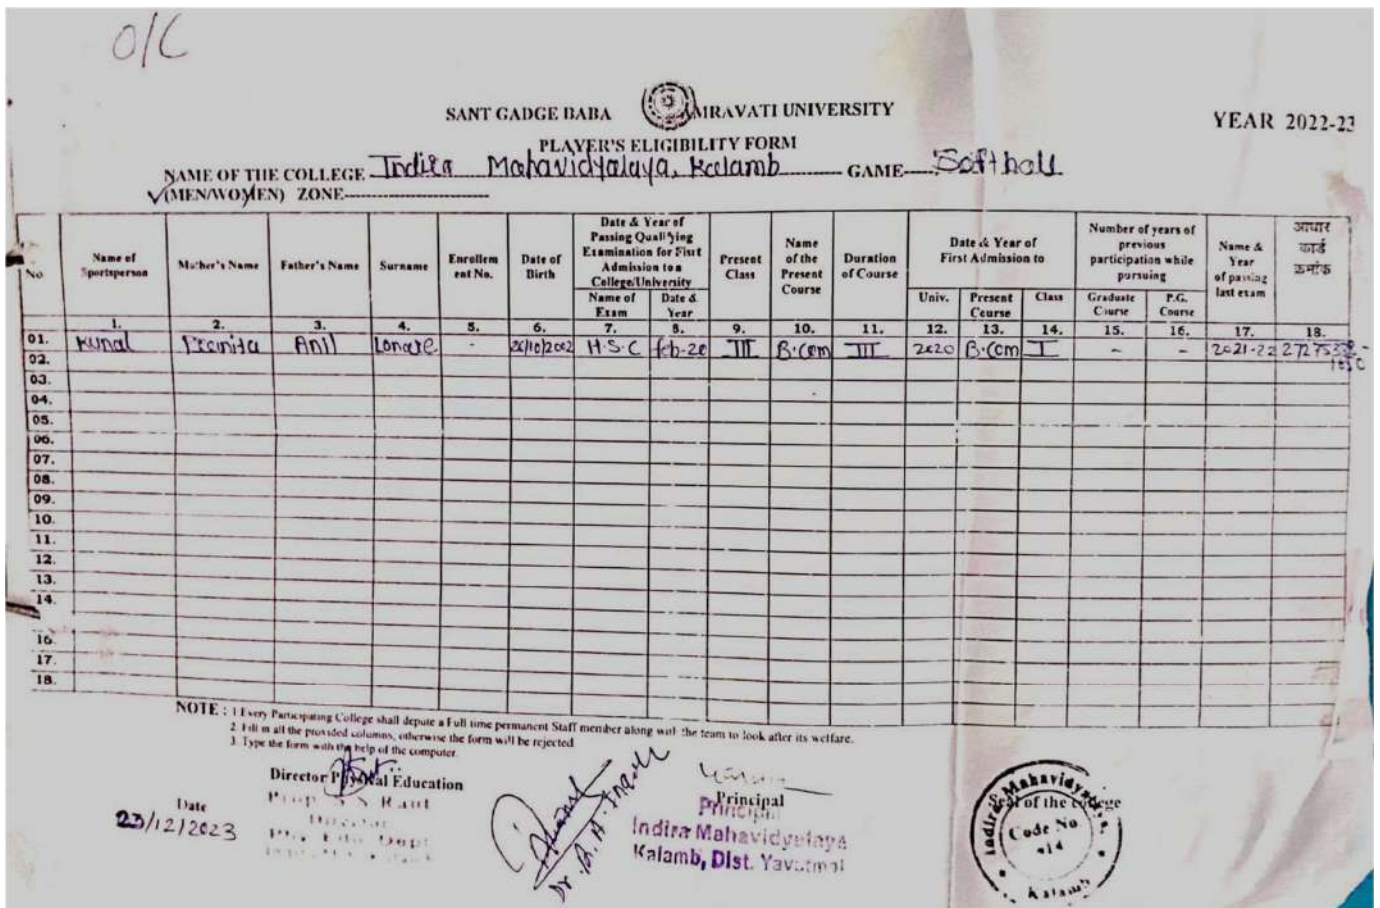 O/C
SANT GADGE BABA AMRAVATI UNIVERSITY
YEAR 2022-23
PLAYER'S ELIGIBILITY FORM
NAME OF THE COLLEGE Indira Mahavidyalaya, Kalamb GAME Softball
(MEN/WOMEN) ZONE
No
Name of Sportsperson
Mother's Name
Father's Name
Surname
Enrollem ent No.
Date of Birth
Date & Year of Passing Qualifying Examination for First Admission to a College/University
Name of Exam
Date & Year
Present Class
Name of the Present Course
Duration of Course
Date & Year of First Admission to
Univ.
Present Course
Class
Number of years of previous participation while pursuing
Graduate Course
P.G. Course
Name & Year of passing last exam
आधार कार्ड क्रमांक
1. 2. 3. 4. 5. 6. 7. 8. 9. 10. 11. 12. 13. 14. 15. 16. 17. 18.
01. Kunal Anil Lonare - H.S.C feb-20 III B.Com III 2020 B.Com I - - 2021-22
02.
03.
04.
05.
06.
07.
08.
09.
10.
11.
12.
13.
14.
16.
17.
18.
NOTE : 1 Every Participating College shall depute a Full time permanent Staff member along with the team to look after its welfare.
2. Fill in all the provided columns, otherwise the form will be rejected
3. Type the form with the help of the computer.
Director Physical Education
Prop. S S Raut
Director
Date
23/12/2023
Dr. R. A. Ingole
Principal
Principal
Indira Mahavidyalaya
Kalamb, Dist. Yavatmal
Seal of the college
Indira Mahavidyalaya
Code No
414
Kalamb